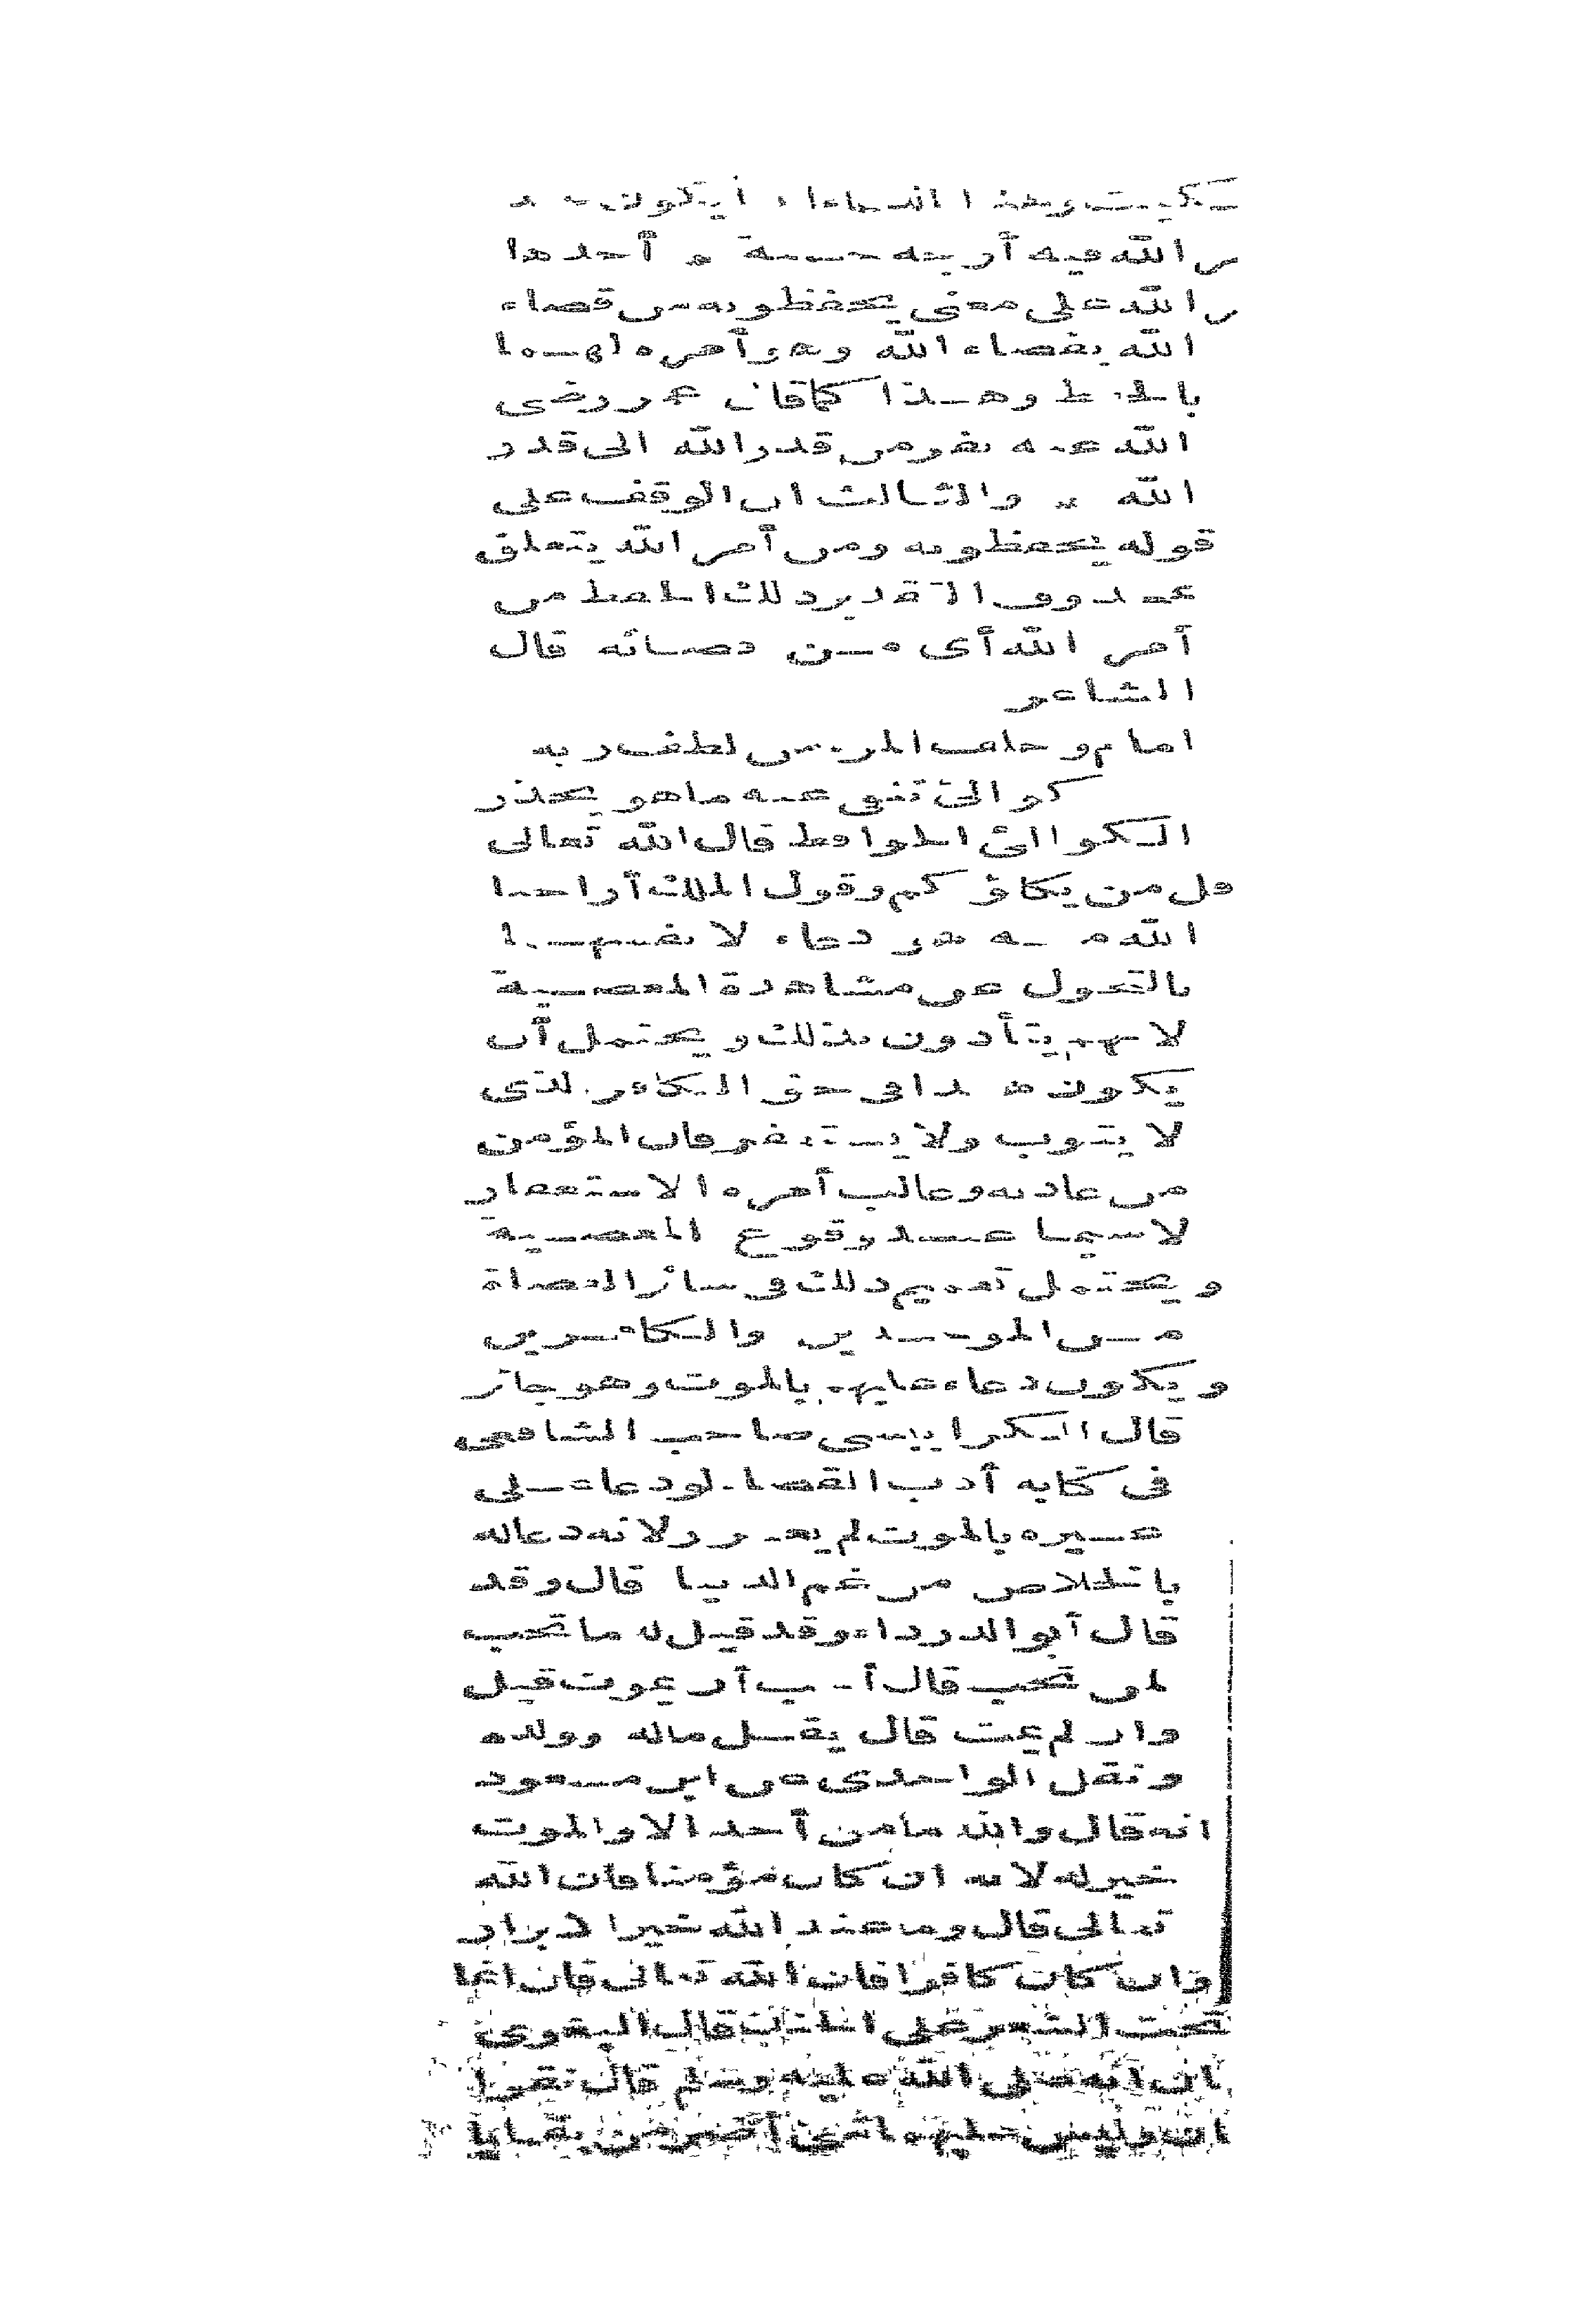 الله فيه أربعة أحدها
الله على معنى يحفظونه من قضاء
الله بقضاء الله وهو أمره لهما
بالحفظ وهذا كما قال عمر رضى
الله عنه نفر من قدر الله الى قدر
الله والثالث ان الوقف على
قوله يحفظونه ومن أمر الله يتعلق
بمحذوف التقدير ذلك الحفظ من
أمر الله أى من قضائه قال
الشاعر
امام وخلف المرء من لطف ربه
كوالئ تنفى عنه ما هو يحذر
الكوالئ الحوافظ قال الله تعالى
قل من يكلؤكم وقول الملك أراحنا
الله منه هو دعاء لانفسهما
بالتحول عن مشاهدة المعصية
لانهم يتأذون بذلك ويحتمل أن
يكون هذا فى حق الكافر الذى
لا يتوب ولا يستغفر فان المؤمن
من عادته وغالب أمره الاستغفار
لاسيما عند وقوع المعصية
ويحتمل تعميم ذلك فى سائر العصاة
من الموحدين والكافرين
ويكون دعاء عليهم بالموت وهو جائز
قال الكرابيسى صاحب الشافعى
فى كتابه أدب القضاء لو دعا على
غيره بالموت لم يعزر لانه دعا له
بالخلاص من غم الدنيا قال وقد
قال أبو الدرداء وقد قيل له ما تحب
لمن تحب قال أحب أن يموت قيل
وان لم يمت قال يقل ماله وولده
ونقل الواحدى عن ابن مسعود
انه قال والله ما من أحد الا والموت
خير له لانه ان كان مؤمنا فان الله
تعالى قال وما عند الله خير للابرار
وان كان كافرا فان الله تعالى قال انما
قال
صلى الله عليه وسلم قال